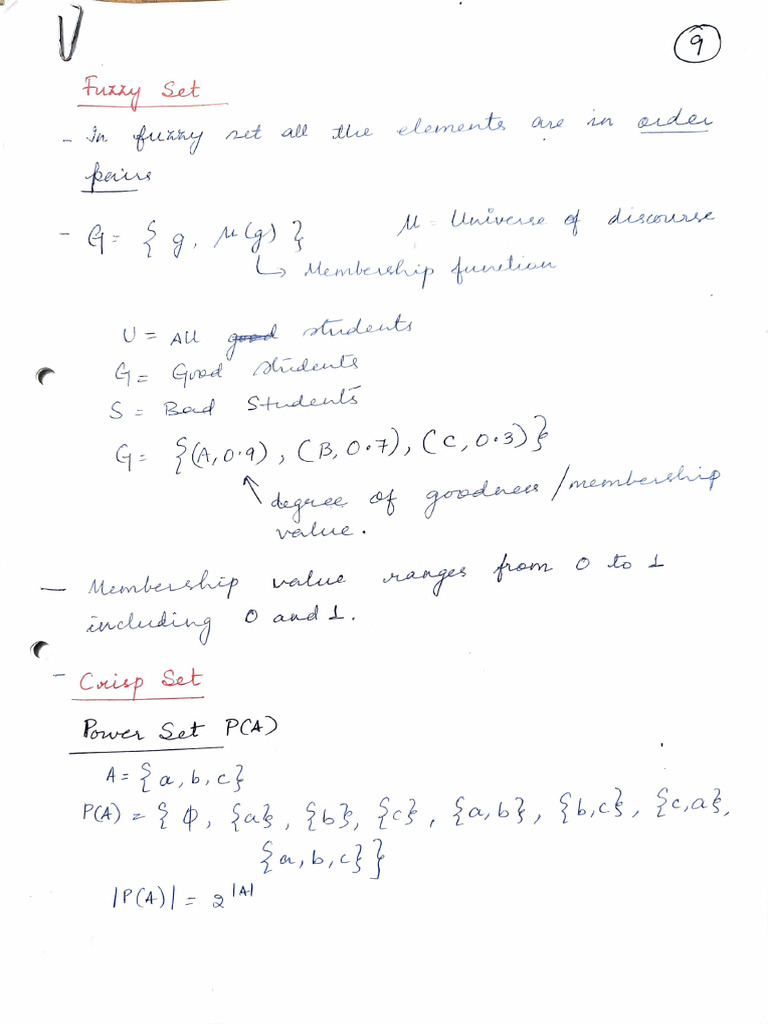 V
9
Fuzzy Set
- In fuzzy set all the elements are in order
pairs
- G = { g, μ(g) } μ = Universe of discourse
↳ Membership function
U = All good students
G = Good students
S = Bad Students
G = {(A, 0.9), (B, 0.7), (C, 0.3)}
degree of goodness/membership
value.
- Membership value ranges from 0 to 1
including 0 and 1.
- Crisp Set
Power Set P(A)
A = {a, b, c}
P(A) = { ϕ, {a}, {b}, {c}, {a, b}, {b, c}, {c, a},
{a, b, c}}
|P(A)| = 2^|A|